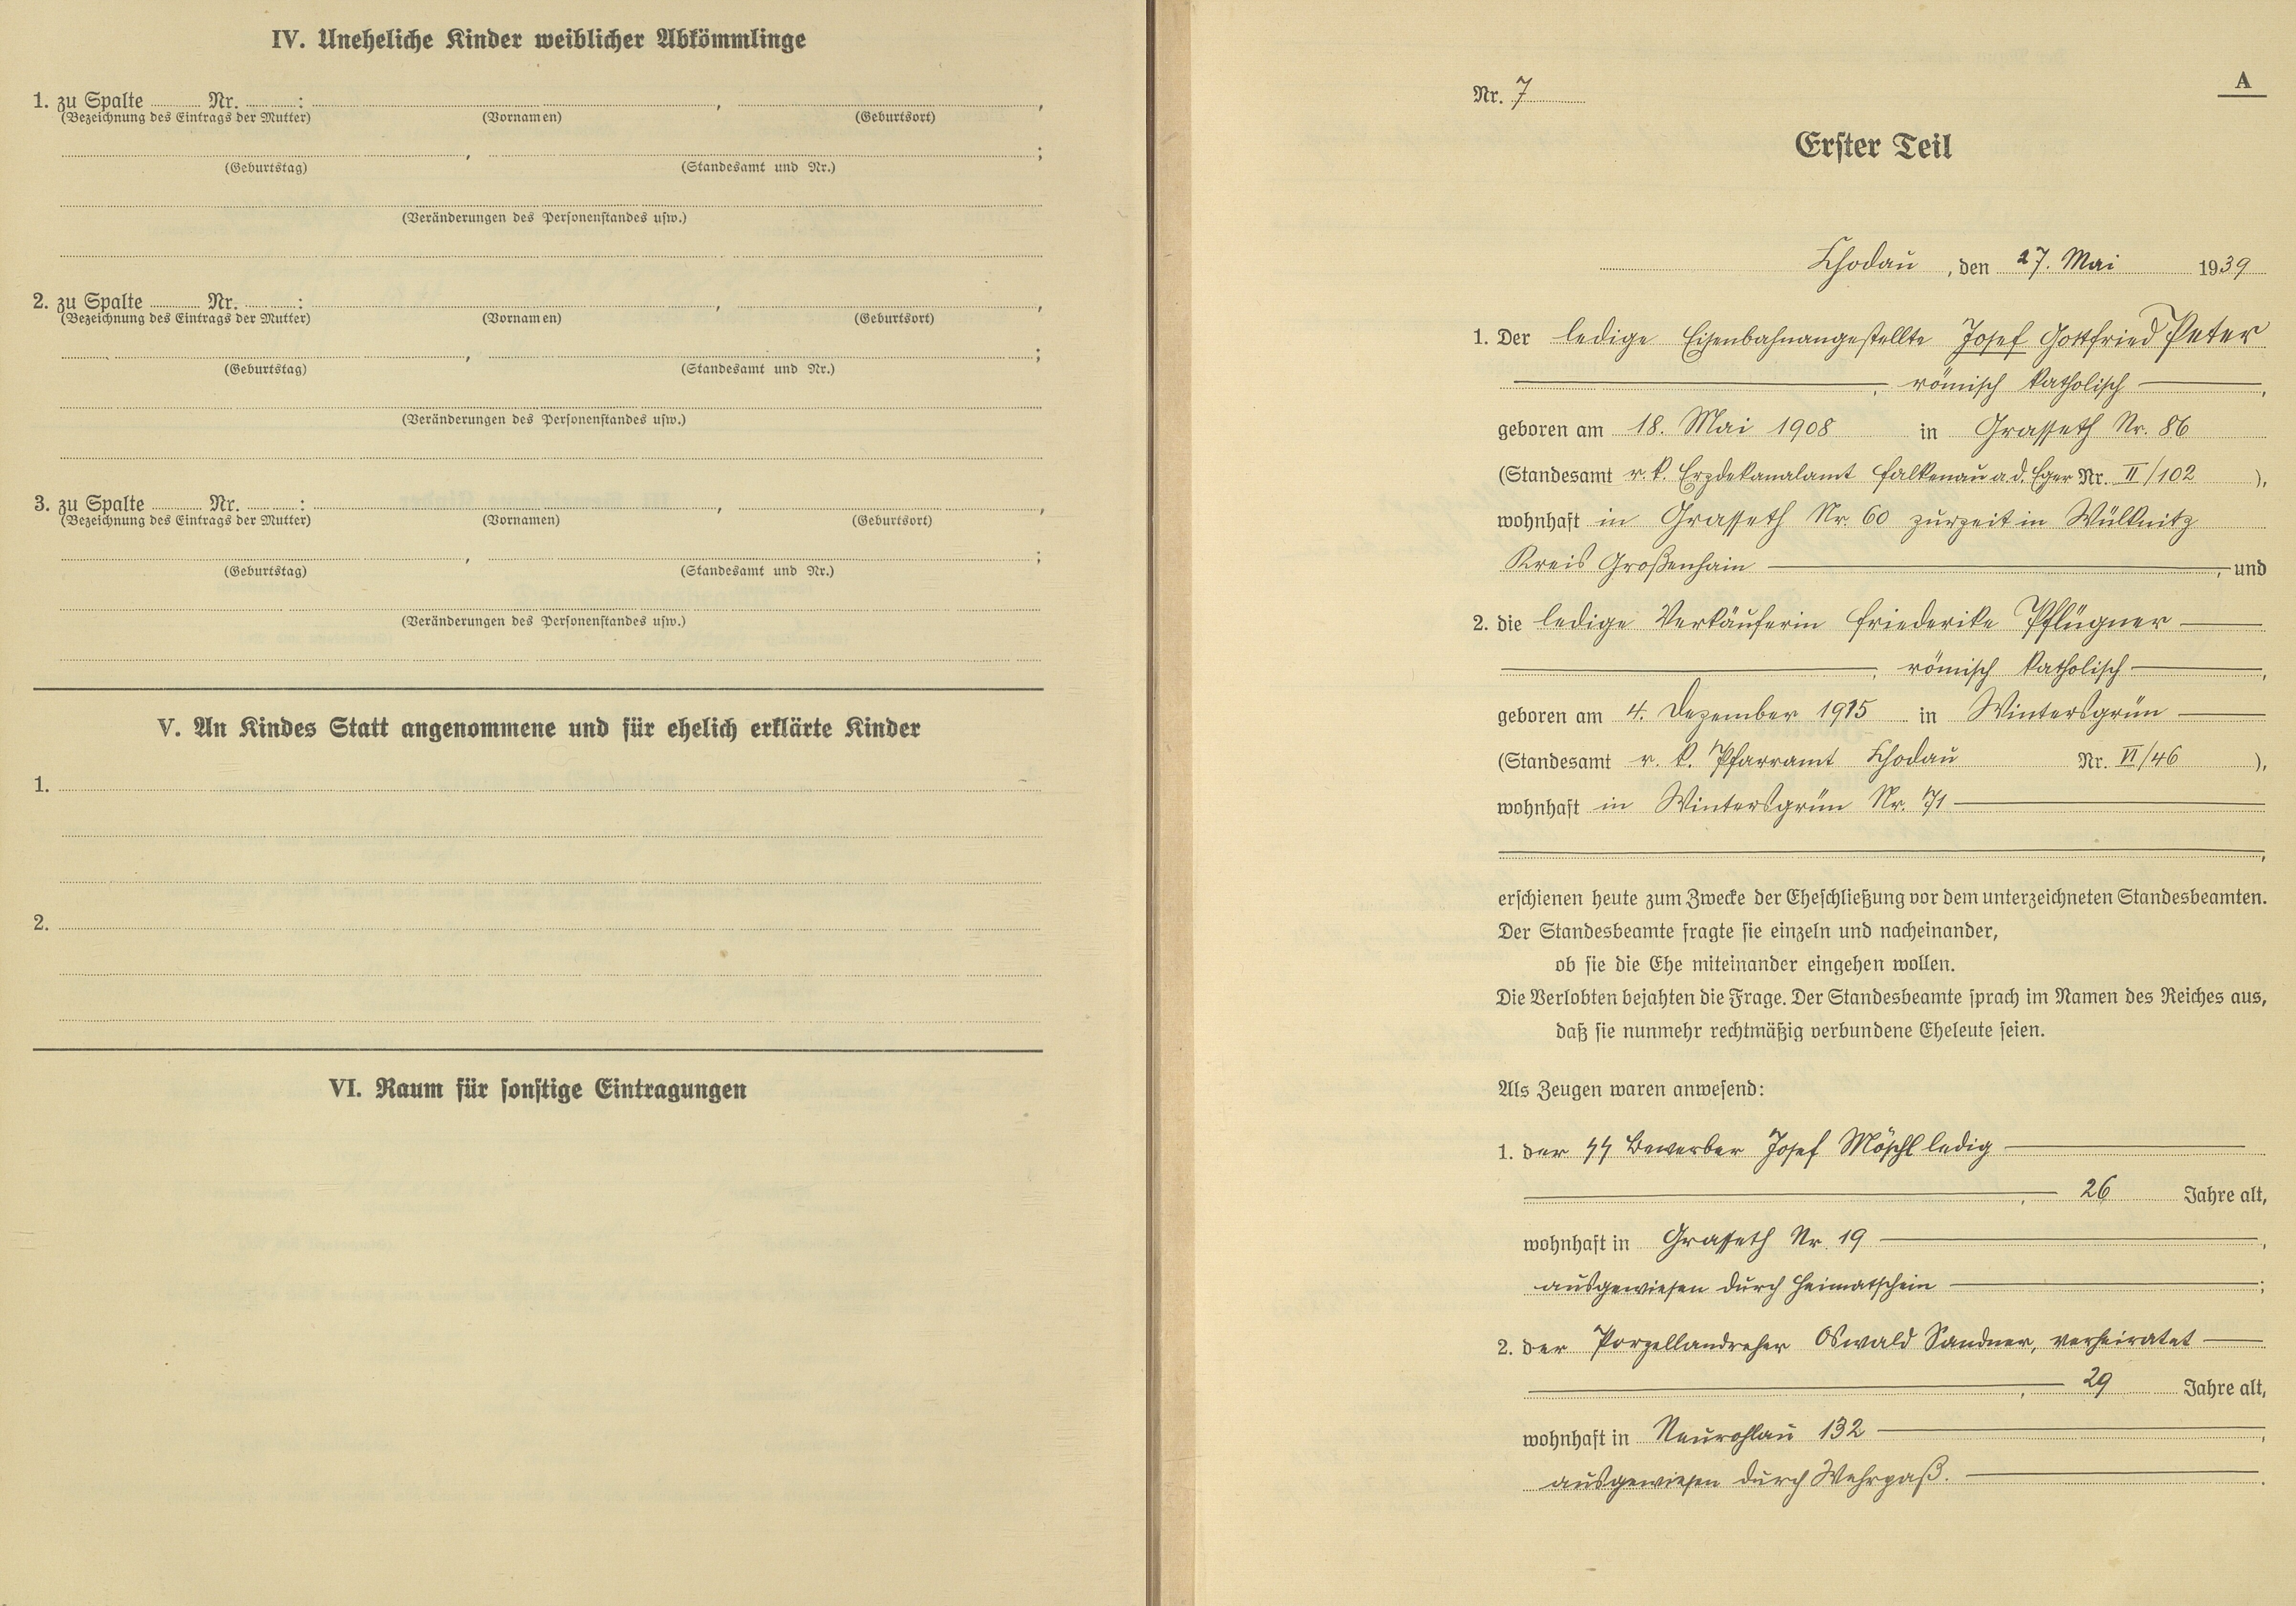 IV. Uneheliche Kinder weiblicher Abkömmlinge
1. zu Spalte ........ Nr. ........ : ........ , ........ ,
(Bezeichnung des Eintrags der Mutter) (Vornamen) (Geburtsort)
........ , ........ ;
(Geburtstag) (Standesamt und Nr.)
(Veränderungen des Personenstandes usw.)
2. zu Spalte ........ Nr. ........ : ........ , ........ ,
(Bezeichnung des Eintrags der Mutter) (Vornamen) (Geburtsort)
........ , ........ ;
(Geburtstag) (Standesamt und Nr.)
(Veränderungen des Personenstandes usw.)
3. zu Spalte ........ Nr. ........ : ........ , ........ ,
(Bezeichnung des Eintrags der Mutter) (Vornamen) (Geburtsort)
........ , ........ ;
(Geburtstag) (Standesamt und Nr.)
(Veränderungen des Personenstandes usw.)
V. An Kindes Statt angenommene und für ehelich erklärte Kinder
1.
2.
VI. Raum für sonstige Eintragungen
A
Nr. 7
Erster Teil
Chodau , den 27. Mai 1939
1. Der ledige Eisenbahnangestellte Josef Gottfried Peter
, römisch katholisch ,
geboren am 18. Mai 1908 in Grasseth Nr. 86
(Standesamt r. k. Erzdekanalamt Falkenau a. d. Eger Nr. II/102 ),
wohnhaft in Grasseth Nr. 60 zurzeit in Wülknitz
Kreis Großenhain , und
2. die ledige Verkäuferin Friederike Pflügner
, römisch katholisch ,
geboren am 4. Dezember 1915 in Wintersgrün
(Standesamt r. k. Pfarramt Chodau Nr. VI/46 ),
wohnhaft in Wintersgrün Nr. 71
,
erschienen heute zum Zwecke der Eheschließung vor dem unterzeichneten Standesbeamten.
Der Standesbeamte fragte sie einzeln und nacheinander,
ob sie die Ehe miteinander eingehen wollen.
Die Verlobten bejahten die Frage. Der Standesbeamte sprach im Namen des Reiches aus,
daß sie nunmehr rechtmäßig verbundene Eheleute seien.
Als Zeugen waren anwesend:
1. der SS Bewerber Josef Möschl ledig
, 26 Jahre alt,
wohnhaft in Grasseth Nr. 19 ,
ausgewiesen durch Heimatschein ;
2. der Porzellandreher Oswald Sandner, verheiratet
, 29 Jahre alt,
wohnhaft in Neurohlau 132 ,
ausgewiesen durch Wehrpaß. .